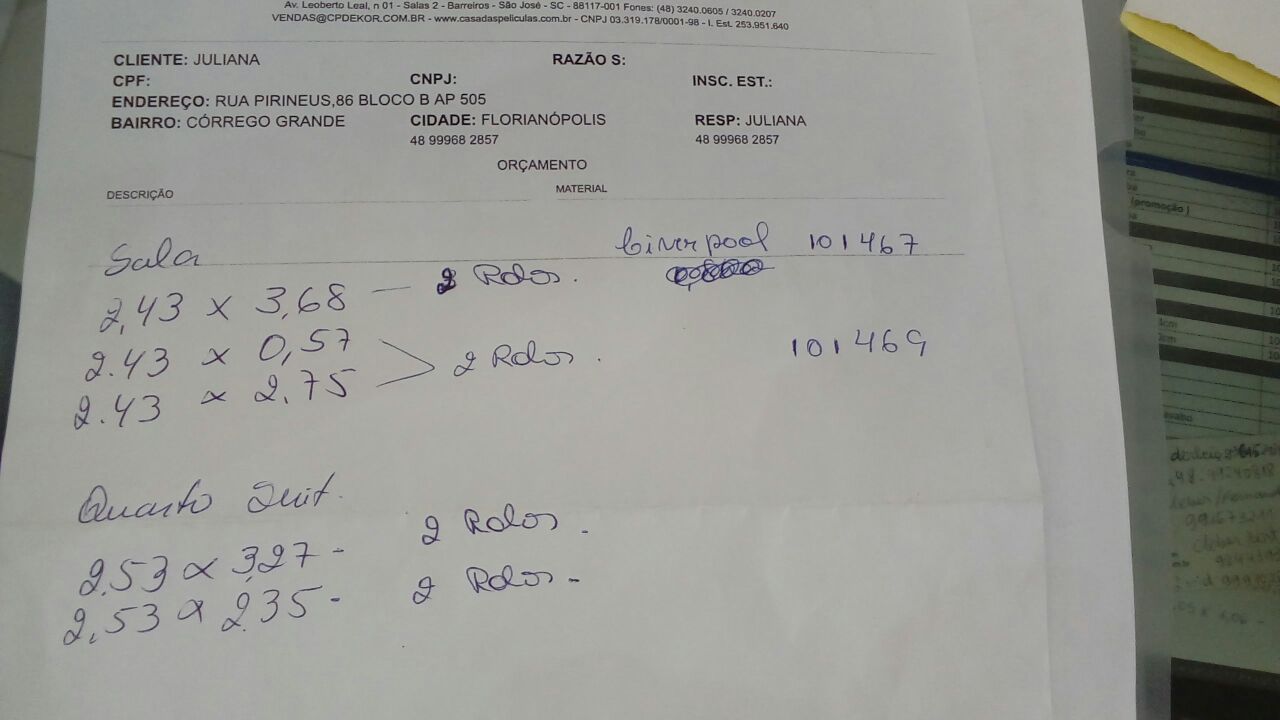 Av. Leoberto Leal, n 01 - Salas 2 - Barreiros - São José - SC - 88117-001 Fones: (48) 3240.0605 / 3240.0207
VENDAS@CPDEKOR.COM.BR - www.casadaspeliculas.com.br - CNPJ 03.319.178/0001-98 - I. Est. 253.951.640
CLIENTE: JULIANA RAZÃO S:
CPF: CNPJ: INSC. EST.:
ENDEREÇO: RUA PIRINEUS,86 BLOCO B AP 505
BAIRRO: CÓRREGO GRANDE CIDADE: FLORIANÓPOLIS RESP: JULIANA
48 99968 2857 48 99968 2857
ORÇAMENTO
DESCRIÇÃO MATERIAL
Sala Liverpool 101467
2,43 x 3,68 — 2 Rolos.
2.43 x 0,57
2 Rolos. 101469
2.43 x 2,75
Quarto Suit.
2,53 x 3,27 - 2 Rolos.
2,53 x 2.35 - 2 Rolos -
(promoção)